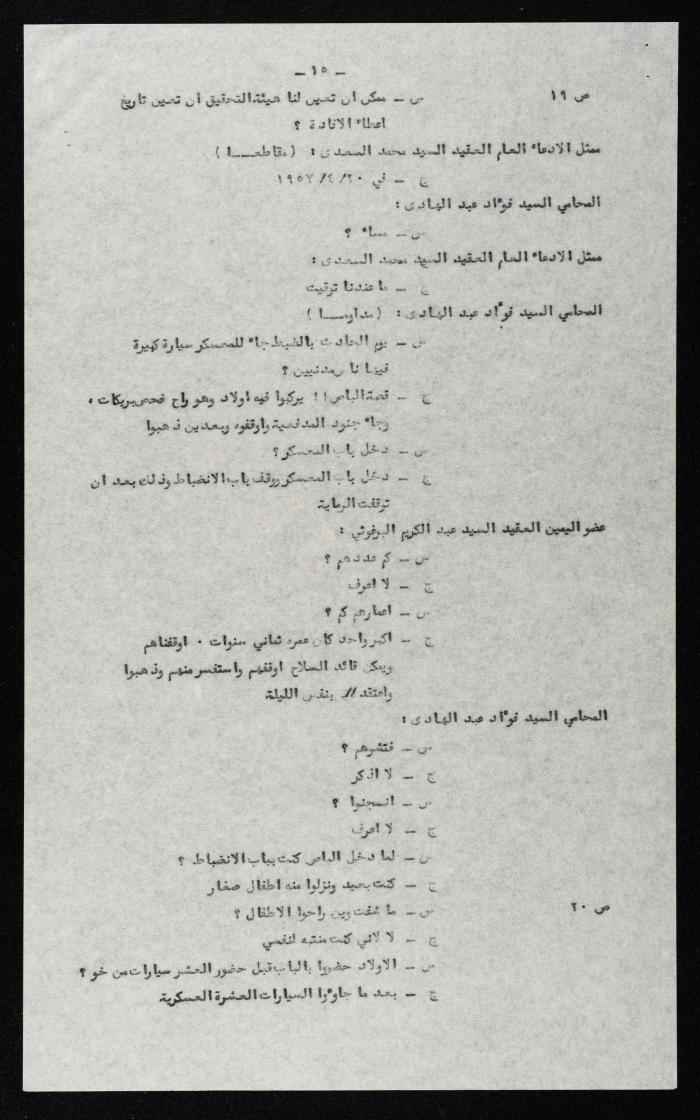 ــ ١٥ ــ
ص ١٩
س ــ ممكن ان تعين لنا هيئة التحقيق ان تعين تاريخ
اعطاء الافادة ؟
ممثل الادعاء العام العقيد السيد محمد السعدى : ( مقاطعـــا )
ج ــ في ٢٠/ ٤/ ١٩٥٧
المحامي السيد فوءاد عبد الهادى :
س ــ مساء ؟
ممثل الادعاء العام العقيد السيد محمد السعدى :
ج ــ ما عندنا توقيت
المحامي السيد فوءاد عبد الهادى : ( مداومـــا )
س ــ يوم الحادث بالضبط جاء للمعسكر سيارة كبيرة
فيها ناس مدنيين ؟
ج ــ قصة الباص !! يركبوا فيه اولاد وهو راح فحص بريكات ٠
وجاء جنود المدفعية واوقفوه وبعدين ذهبوا
س ــ دخل باب المعسكر ؟
ج ــ دخل باب المعسكر ووقف باب الانضباط وذلك بعد ان
توقفت الرماية
عضو اليمين العقيد السيد عبد الكريم البرغوثي :
س ــ كم عددهم ؟
ج ــ لا اعرف
س ــ اعمارهم كم ؟
ج ــ اكبر واحد كان عمره ثماني سنوات ٠ اوقفناهم
ويمكن قائد السلاح اوقفهم واستفسر منهم وذهبوا
واعتقد // بنفس الليلة
المحامي السيد فوءاد عبد الهادى :
س ــ فتشوهم ؟
ج ــ لا اذكر
س ــ انسجنوا ؟
ج ــ لا اعرف
س ــ لما دخل الباص كنت بباب الانضباط ؟
ج ــ كنت بعيد ونزلوا منه اطفال صغار
ص ٢٠
س ــ ما شفت وين راحوا الاطفال ؟
ج ــ لا لاني كنت منتبه لنفسي
س ــ الاولاد حضروا بالباب قبل حضور العشر سيارات من خو ؟
ج ــ بعد ما جاوءوا السيارات العشرة العسكرية